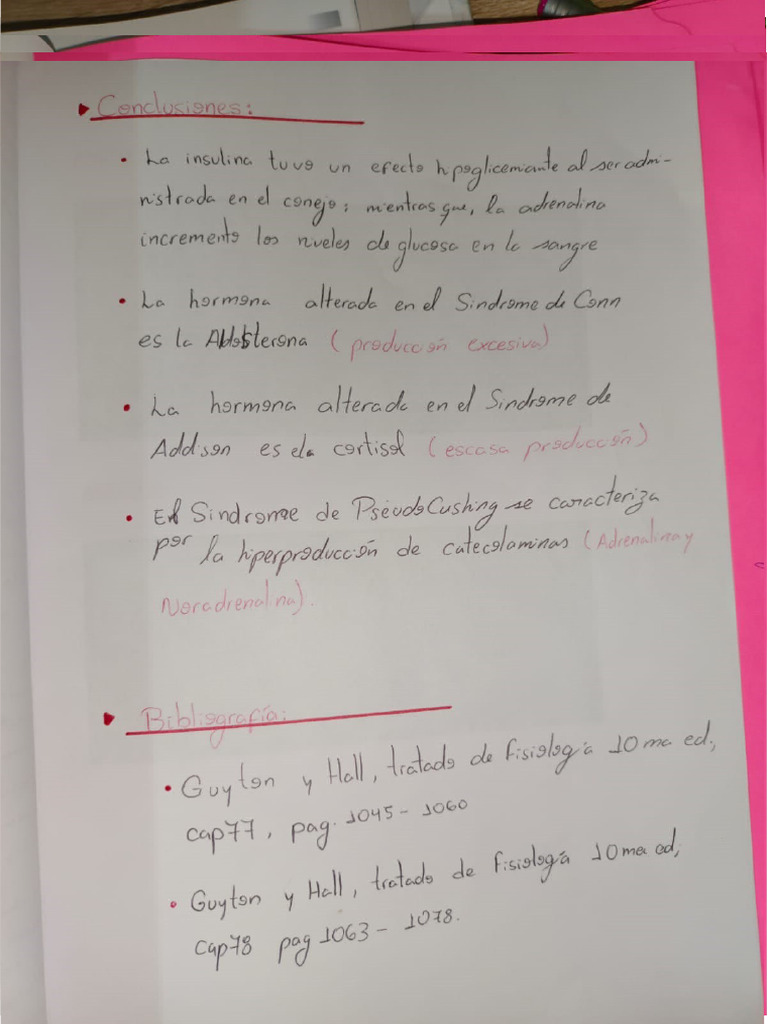 Conclusiones:
• La insulina tuvo un efecto hipoglicemiante al ser admi-
nistrada en el conejo; mientras que, la adrenalina
incremento los niveles de glucosa en la sangre
• La hormona alterada en el Sindrome de Conn
es la Aldosterona (producción excesiva)
• La hormona alterada en el Sindrome de
Addison es el cortisol (escasa producción)
• El Sindrome de PseudoCushing se caracteriza
por la hiperproducción de catecolaminas (Adrenalina y
Noradrenalina).
Bibliografía:
• Guyton y Hall, tratado de fisiología 10ma ed;
cap 77, pag. 1045 - 1060
• Guyton y Hall, tratado de fisiología 10ma ed;
cap 78 pag 1063 - 1078.